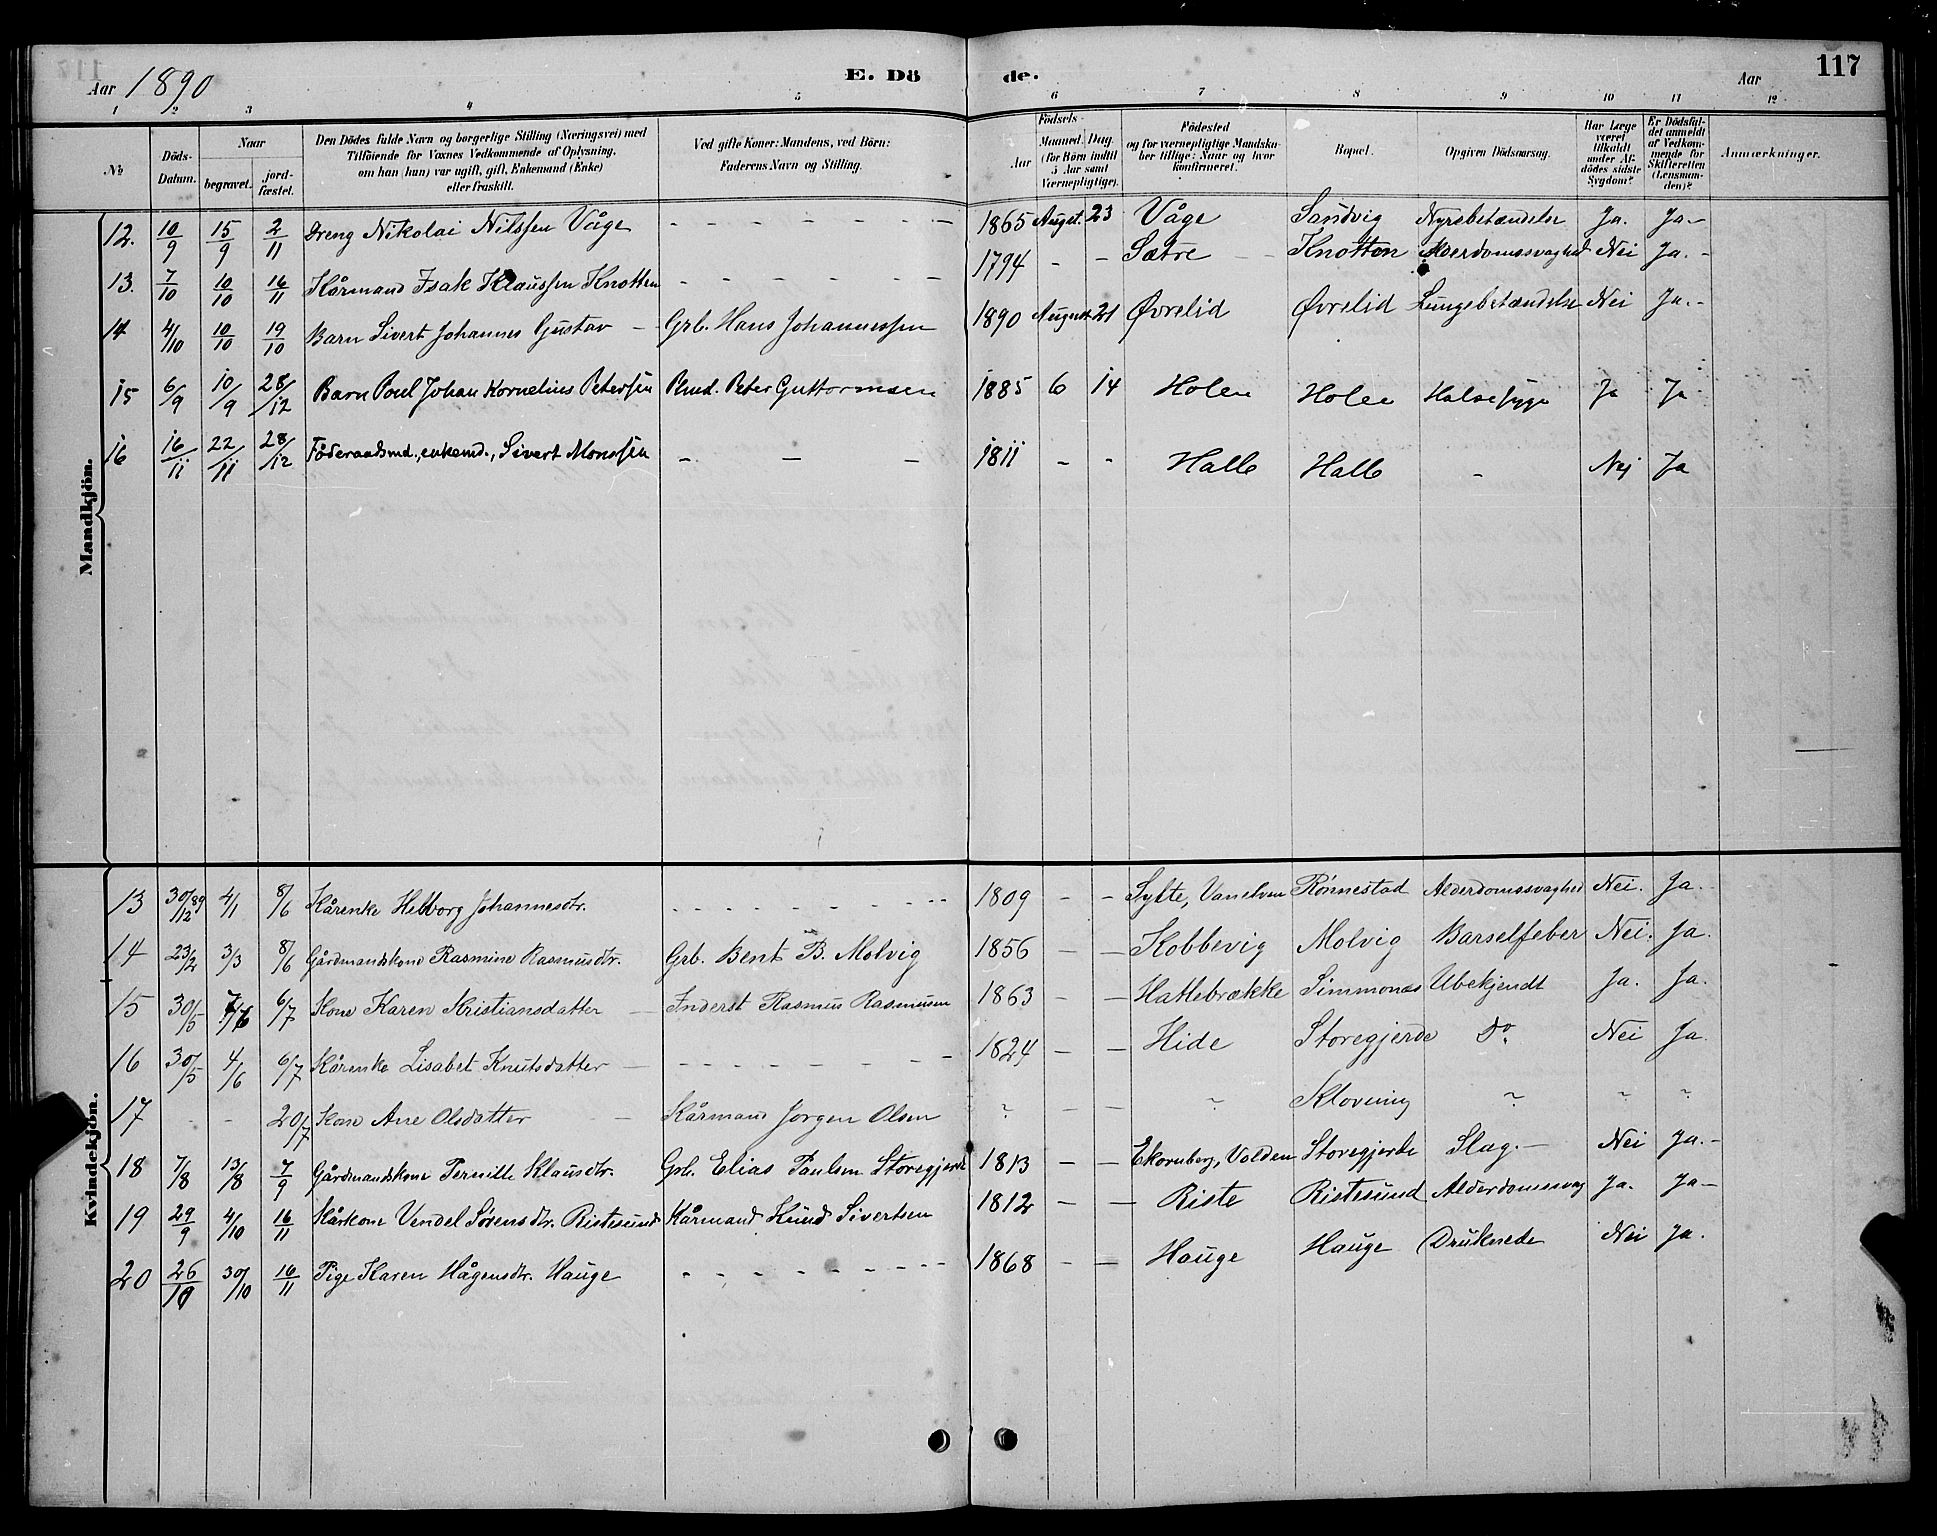 Aar 1890 E. Döde. Aar 117
1 2 3 4 5 6 7 8 9 10 11 12
№ Döds-Datum. Naar begravet. jord-fæstet. Den Dödes fulde Navn og borgerlige Stilling (Næringsvei) med Tilföiende for Voxnes Vedkommende af Oplysning, om han (hun) var ugift, gift, Enkemand (Enke) eller fraskilt. Ved gifte Koner: Mandens, ved Börn: Faderens Navn og Stilling. Födsels- Aar Maaned Dag (for Börn indtil 5 Aar samt Værnepligtige). Födested og for værnepligtige Mandskaber tillige: Naar og hvor konfirmeret. Bopæl. Opgiven Dödsaarsag. Har Læge været tilkaldt under Afdödes sidste Sygdom? Er Dödsfaldet anmeldt af Vedkommende for Skifteretten (Lensmanden)? Anmærkninger.
Mandkjön.
12. 10/9 15/9 2/11 Dreng Nikolai Nilssen Våge - - - - - - - 1865 August. 23 Våge Sandvig Nyrebetændelse Ja. Ja.-
13. 7/10 10/10 16/11 Kårmand Isak Klaussen Knotten - - - - - - 1794 - - Sætre Knotten Alderdomssvaghed Nei Ja.-
14 4/10 10/10 19/10 Barn Sivert Johannes Gustav - Grb. Hans Johannessen 1890 August 21 Øvrelid Øvrelid Lungebetændelse Nei Ja.-
15 6/9 10/9 28/12 Barn Poul Johan Kornelius Petersen Peter Guttormsen 1885 6 14 Holen Holen Halssyge Ja Ja
16 16/11 22/11 28/12 Föderaadsmd., enkemd., Sivert Monssen - - - 1811 - - Halle Halle - Nej Ja
Kvindekjön.
13 30/12 89 4/1 8/6 Kårenke Helborg Johannesdtr. - - - - - - - 1809 - - Sylte, Vanelven Rönnestad Alderdomssvaghed Nei. Ja.-
14 23/2 3/3 8/6 Gårdmandskone Rasmine Rasmusdtr. Grb. Bent B. Molvig 1856 - - Kobbevig Molvig Barselfeber Nei. Ja.
15 30/5 7/6 6/7 Kone Karen Kristiansdatter - Inderst Rasmus Rasmusen 1863 - - Hattebrække Simmonæs Ubekjendt Ja. Ja.
16 30/5 4/6 6/7 Kårenke Lisabet Knutsdatter - - - - - - - 1824 - - Hide Storegjerde do. Nei Ja
17 - - 20/7 Kone Ane Olsdatter - Kårmand Jorgen Olsen ? - - ~ Klovning ~ ~ ~
18 7/8 13/8 7/9 Gårdmandskone Pernille Klausdtr. Grb. Elias Paulsen Storegjerde 1813 - - Ekornberg, Volden Storegjerde Slag.- Nei Ja.-
19 29/9 4/10 16/11 Kårkone Vendel Sörensdtr. Ristesund Kårmand Knud Sivertsen 1812 - - Riste Ristesund Alderdomssvag Ja. Ja-
20 26/10 30/10 16/11 Pige Karen Hågensdtr. Hauge - - - - - - - - 1868 - - Hauge Hauge Druknede Nei Ja.